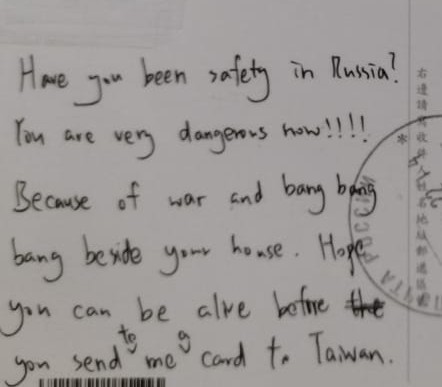 Have you been safety in Russia?
You are very dangerous now!!!!
Because of war and bang bang
bang beside your house. Hope
you can be alive before the
you send to me a card to Taiwan.
右邊請
收件人
姓名地址
РОССИЯ